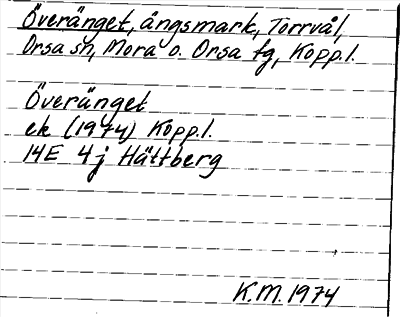 Överänget, ängsmark, Torrvål,
Orsa sn, Mora o. Orsa fg, Kopp.l.
Överänget
ek (1974) Kopp.l.
14E 4j Hättberg
K.M. 1974